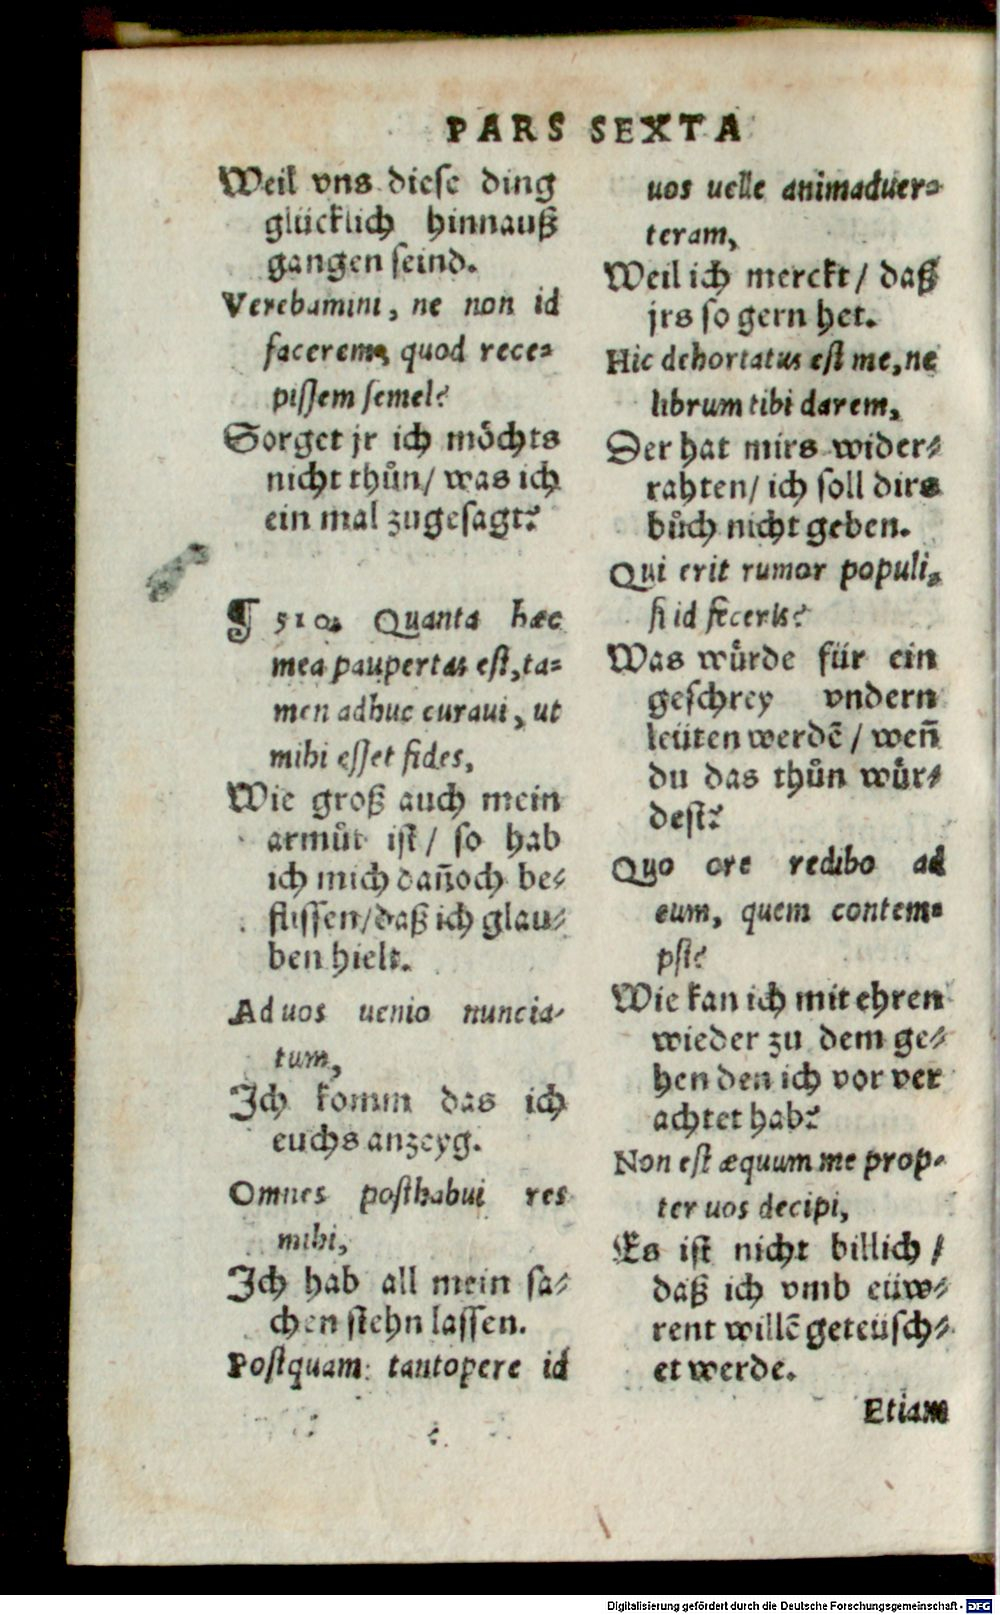 PARS SEXTA
Weil vns diese ding
glücklich hinnauß
gangen seind.
Verebamini, ne non id
facerem, quod rece-
pissem semel?
Sorget jr ich möchts
nicht thůn/ was ich
ein mal zugesagt?
¶ 510. Quanta hæc
mea paupertas est, ta-
men adhuc curaui, ut
mihi esset fides,
Wie groß auch mein
armůt ist/ so hab
ich mich dañoch be-
flissen/ daß ich glau-
ben hielt.
Ad uos uenio nuncia-
tum,
Ich komm das ich
euchs anzeyg.
Omnes posthabui res
mihi,
Ich hab all mein sa-
chen stehn lassen.
Postquam tantopere id
uos uelle animaduer-
teram,
Weil ich merckt/ daß
jrs so gern het.
Hic dehortatus est me, ne
librum tibi darem,
Der hat mirs wider-
rahten/ ich soll dirs
bůch nicht geben.
Qui erit rumor populi,
si id feceris?
Was würde für ein
geschrey vndern
leüten werdē/ weñ
du das thůn wür-
dest?
Quo ore redibo ad
eum, quem contem-
psi?
Wie kan ich mit ehren
wieder zu dem ge-
hen den ich vor ver
achtet hab?
Non est æquum me prop-
ter uos decipi,
Es ist nicht billich/
daß ich vmb eüw-
rent willē geteüsch-
et werde.
Etiam
Digitalisierung gefördert durch die Deutsche Forschungsgemeinschaft - DFG